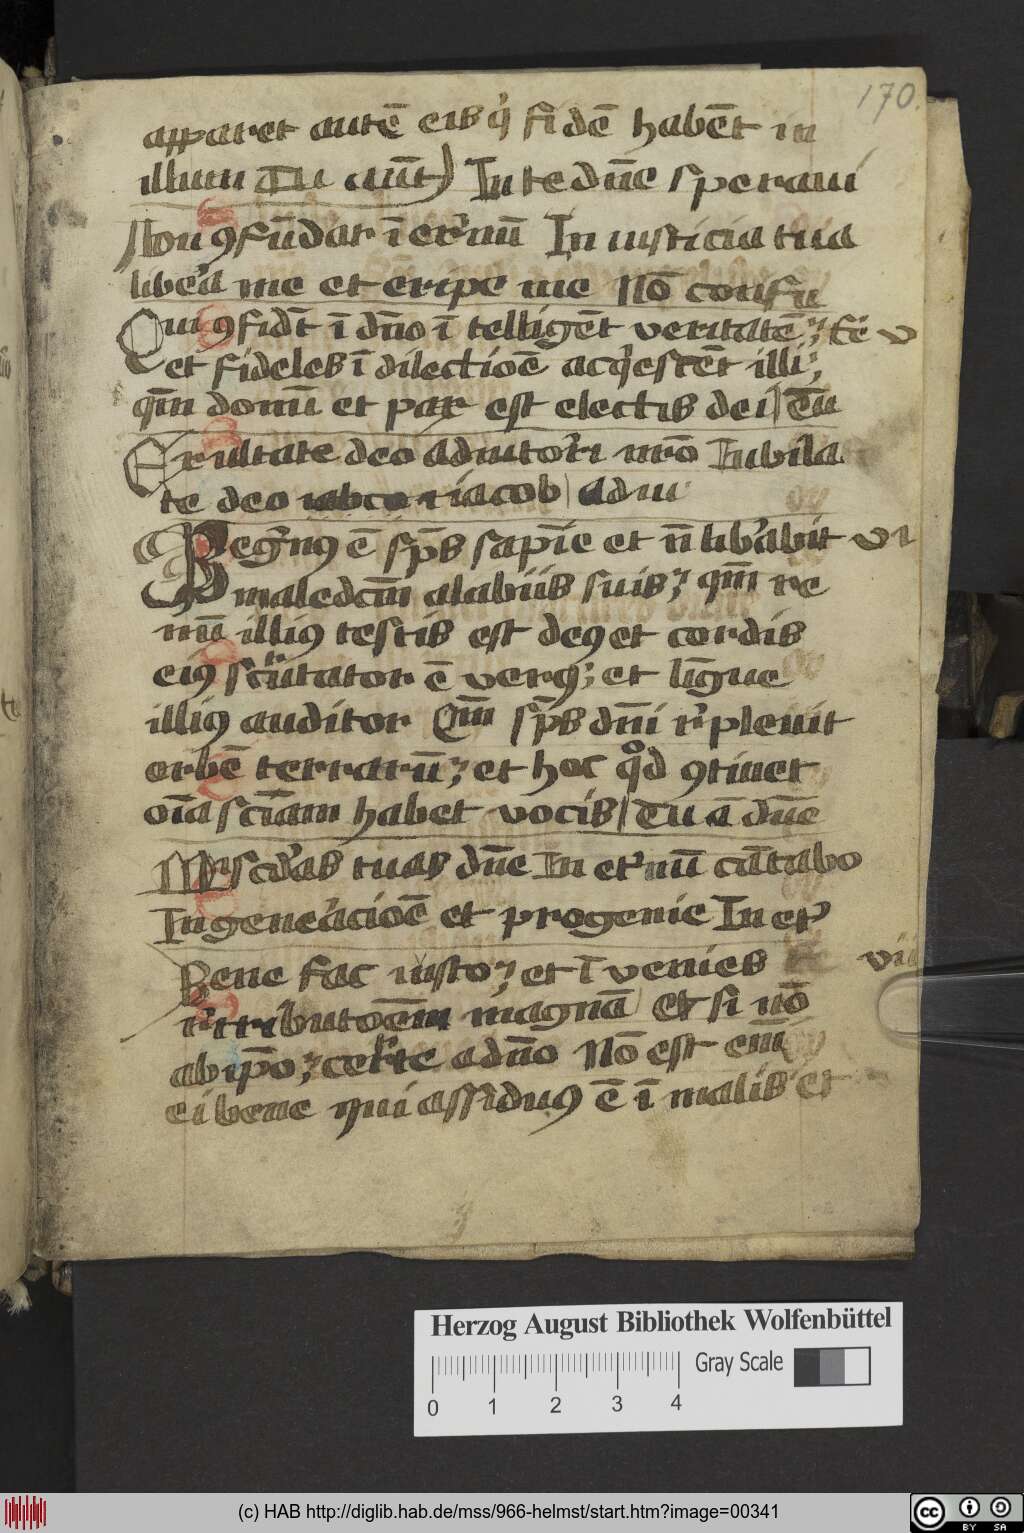 170.
apparet autē eis q̇ fidē habēt in
illum Tu aūt) In te dn̄e speraui
Non ꝯfūdar ī et'nū In iusticia tua
lib'a me et eripe me Nō confu
Qui ꝯfidt̄ ī dn̄o ītelligēt veritatē;
et fideles ī dilectioē acq̇escēt illi;
qm̄ donū et pax est electis dei
Exultate deo adiutori nr̄o Iubila
te deo iacob adiu
Benign' ē sp̄s sapīe et n̄ lib'abit
maledcm̄ a labiis suis; qm̄ re
nū illiꝯ testis est deꝯ et cordis
eiꝯ scrutator ē verꝯ; et līgue
illiꝯ auditor Qm̄ sp̄s dn̄i r'pleuit
orbē terrarū; et hoc qod ꝯtinet
oīa scīam habet vocis Tu a dn̄e
Mis'cd'as tuas dn̄e In et'nū cātabo
In gen'acioē et progenie In et'
Bene fac iusto; et īvenies
r'tributōem magnā et si nō
ab ip̄o; certe a dn̄o Nō est eni
ei bene qui assiduꝯ ē ī malis et
Herzog August Bibliothek Wolfenbüttel
Gray Scale
0 1 2 3 4
(c) HAB http://diglib.hab.de/mss/966-helmst/start.htm?image=00341
cc BY SA